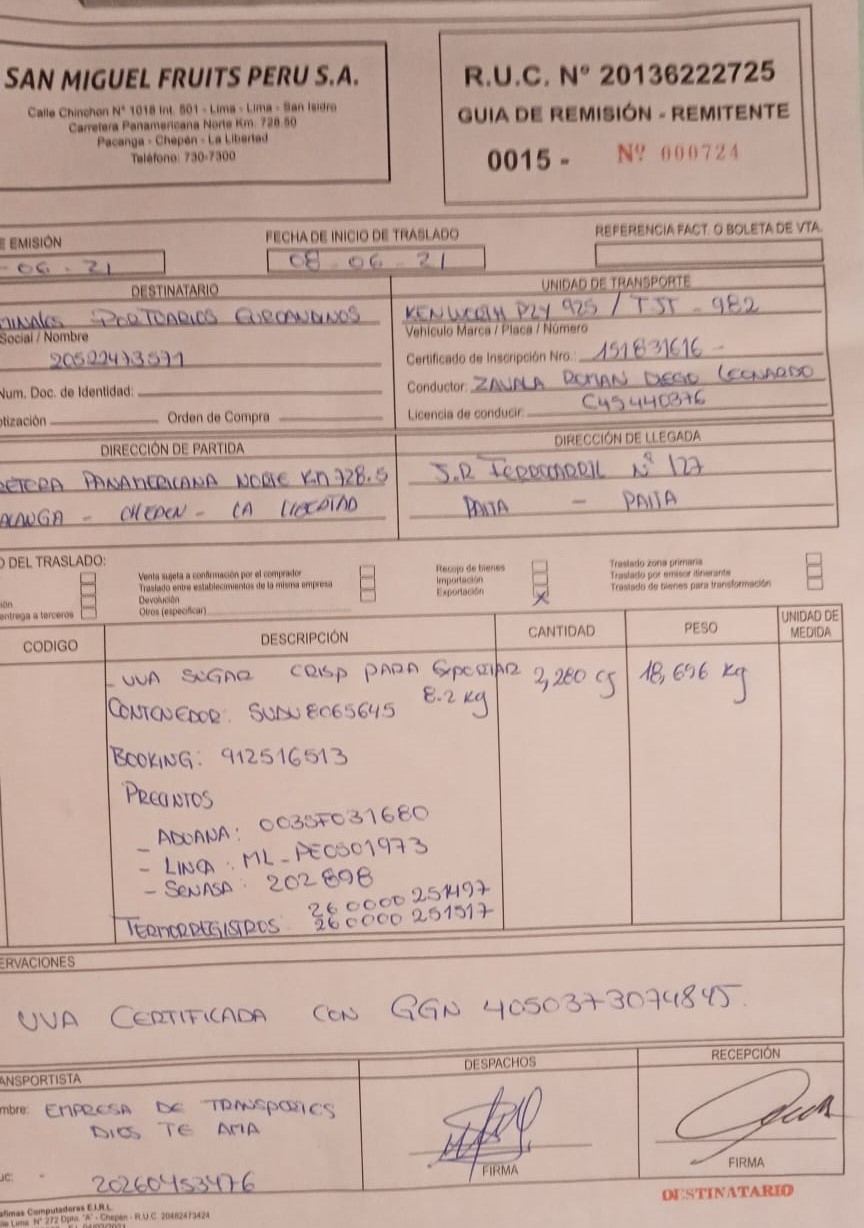 SAN MIGUEL FRUITS PERU S.A.
Calle Chinchon N° 1018 Int. 501 - Lima - Lima - San Isidro
Carretera Panamericana Norte Km. 728.50
Pacanga - Chepén - La Libertad
Teléfono: 730-7300
R.U.C. N° 20136222725
GUIA DE REMISIÓN - REMITENTE
0015 - Nº 000724
E EMISIÓN
- 06 - 21
FECHA DE INICIO DE TRASLADO
08 - 06 - 21
REFERENCIA FACT. O BOLETA DE VTA.
DESTINATARIO
MINALES PORTUARIOS EUROANDINOS
Social / Nombre
20522473571
Num. Doc. de Identidad:
tización Orden de Compra
UNIDAD DE TRANSPORTE
KENWORTH PZY 925 / TJT - 982
Vehículo Marca / Placa / Número
Certificado de Inscripción Nro.: 151831616 -
Conductor: ZAVALA ROMAN DIEGO LEONARDO
Licencia de conducir: C45440376
DIRECCIÓN DE PARTIDA
RETERA PANAMERICANA NORTE KM 728.5
CHEPEN - LA LIBERTAD
DIRECCIÓN DE LLEGADA
J.R FERROCARRIL N° 127
PAITA - PAITA
O DEL TRASLADO:
ión
entrega a terceros
Venta sujeta a confirmación por el comprador
Traslado entre establecimientos de la misma empresa
Devolución
Otros (especificar)
Recojo de bienes
Importación
Exportación X
Traslado zona primaria
Traslado por emisor itinerante
Traslado de bienes para transformación
CODIGO DESCRIPCIÓN CANTIDAD PESO UNIDAD DE MEDIDA
- UVA SUGAR CRISP PARA EXPORTAR 2,280 CJ 18,696 Kg
8.2 Kg
CONTENEDOR: SUDU8065645
BOOKING: 912516513
PRECINTOS
- ADUANA: 0035F031680
- LINEA: ML-PE0501973
- SENASA: 202898
TERMORREGISTROS: 260000251497
260000251517
ERVACIONES
UVA CERTIFICADA CON GGN 4050373074845.
ANSPORTISTA
mbre: EMPRESA DE TRANSPORTES
DIOS TE AMA
UC: - 20260453476
DESPACHOS
FIRMA
RECEPCIÓN
FIRMA
DESTINATARIO
afimas Computadoras E.I.R.L.
lle Lima N° 272 Dpto. "A" - Chepén - R.U.C. 20482473424